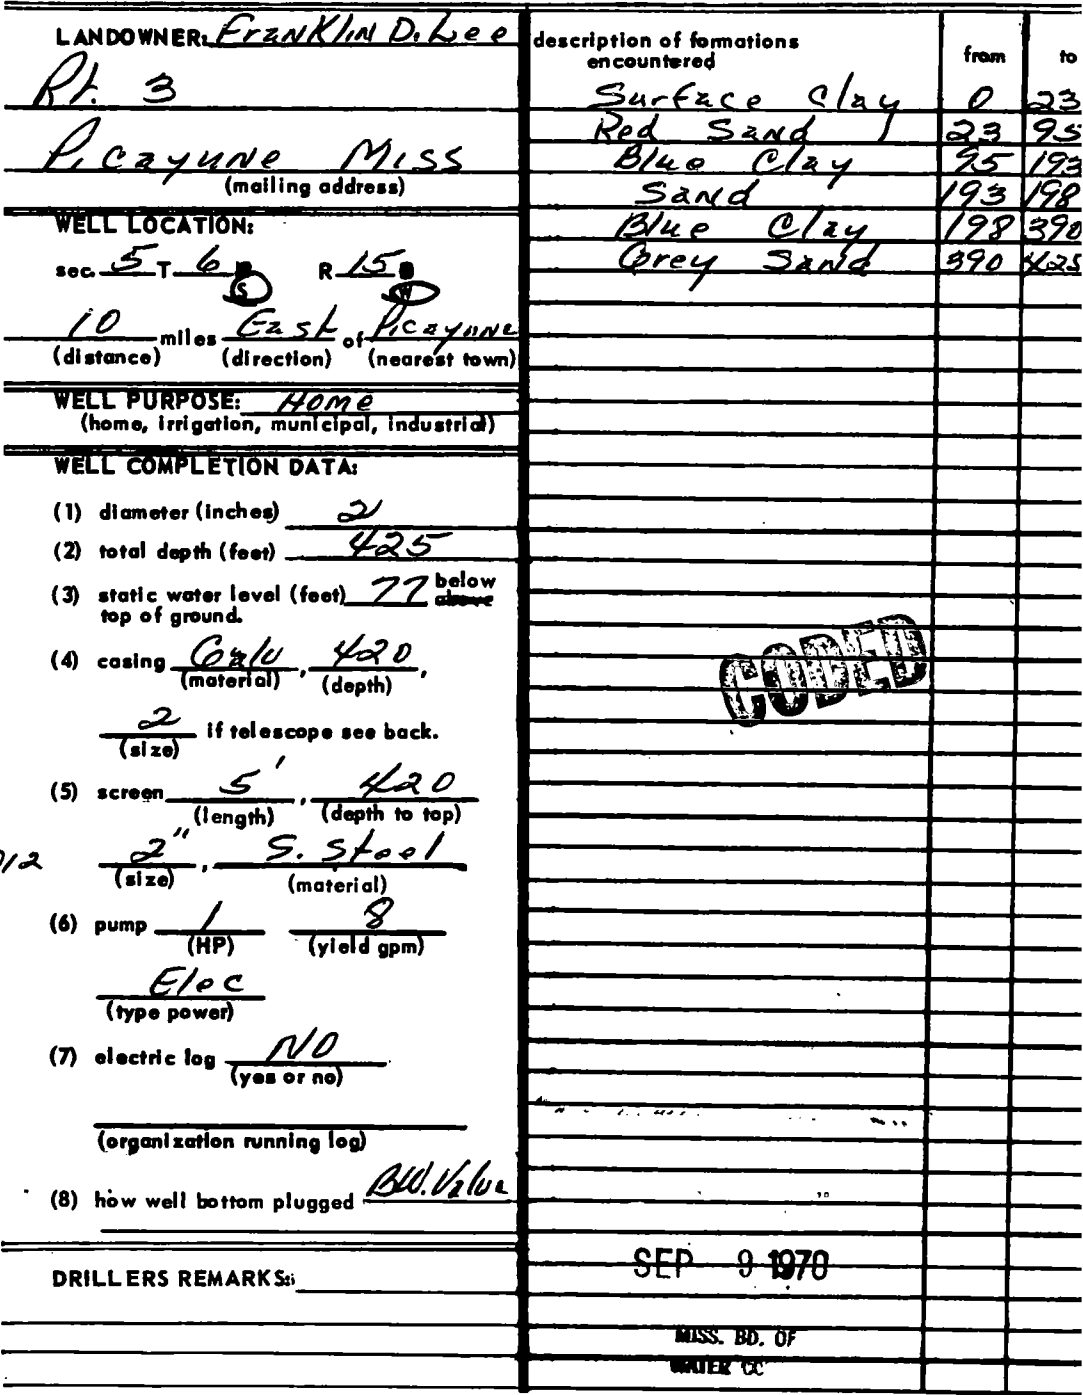 LANDOWNER: Franklin D. Lee
Rt. 3
Picayune Miss
(mailing address)
WELL LOCATION:
sec. 5 T 6 S R 15 W
10 miles East of Picayune
(distance) (direction) (nearest town)
WELL PURPOSE: Home
(home, irrigation, municipal, industrial)
WELL COMPLETION DATA:
(1) diameter (inches) 2
(2) total depth (feet) 425
(3) static water level (feet) 77 below above
top of ground.
(4) casing Galv, 420,
(material) (depth)
2 if telescope see back.
(size)
(5) screen 5', 420
(length) (depth to top)
012 2", S. Steel
(size) (material)
(6) pump 1 8
(HP) (yield gpm)
Elec
(type power)
(7) electric log NO
(yes or no)
(organization running log)
(8) how well bottom plugged B.W. Valve
DRILLERS REMARKS:
description of formations
encountered from to
Surface Clay 0 23
Red Sand 23 95
Blue Clay 95 193
Sand 193 198
Blue Clay 198 390
Grey Sand 390 425
CODED
SEP 9 1970
MISS. BD. OF
WATER CC